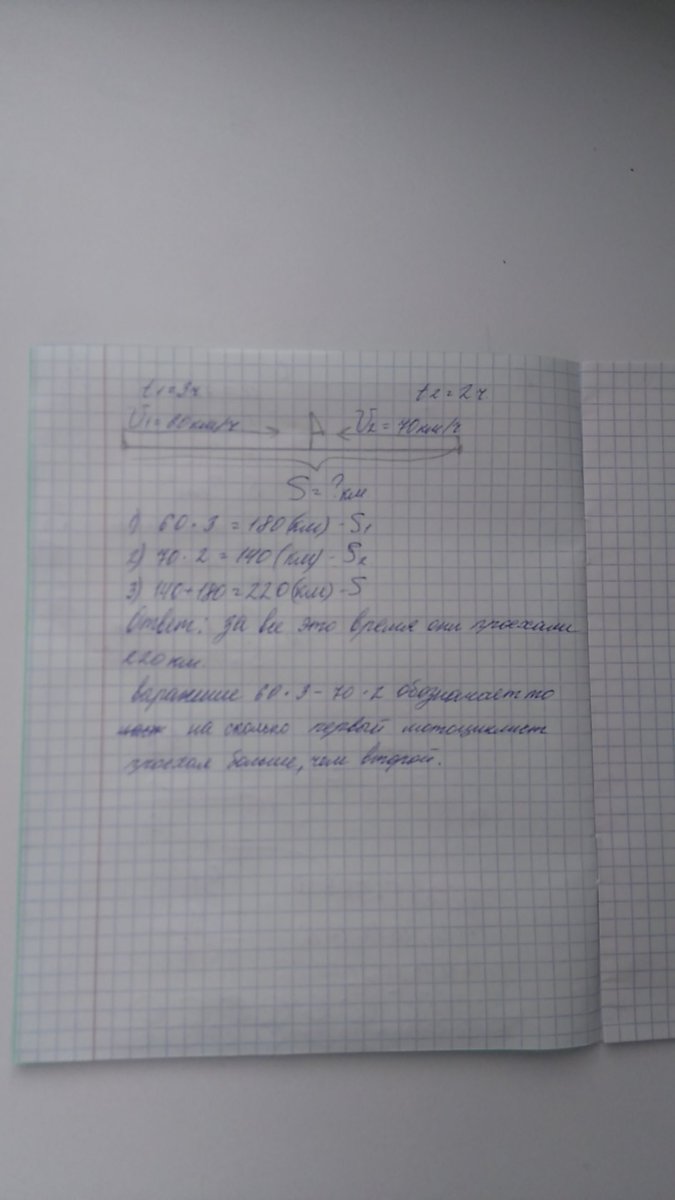 t₁=3ч t₂=2ч
V₁=60км/ч V₂=70км/ч
S=?км
1) 60·3=180(км)-S₁
2) 70·2=140(км)-S₂
3) 140+180=220(км)-S
Ответ: за все это время они проехали
220км.
Выражение 60·3-70·2 обозначает то
на сколько первый мотоциклист
проехал больше, чем второй.